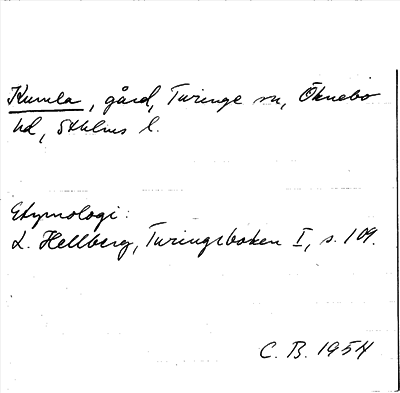 Kumla, gård, Turinge sn, Öknebo
hd, Sthlms l.
Etymologi:
L. Hellberg, Turingeboken I, s. 109.
C. B. 1954